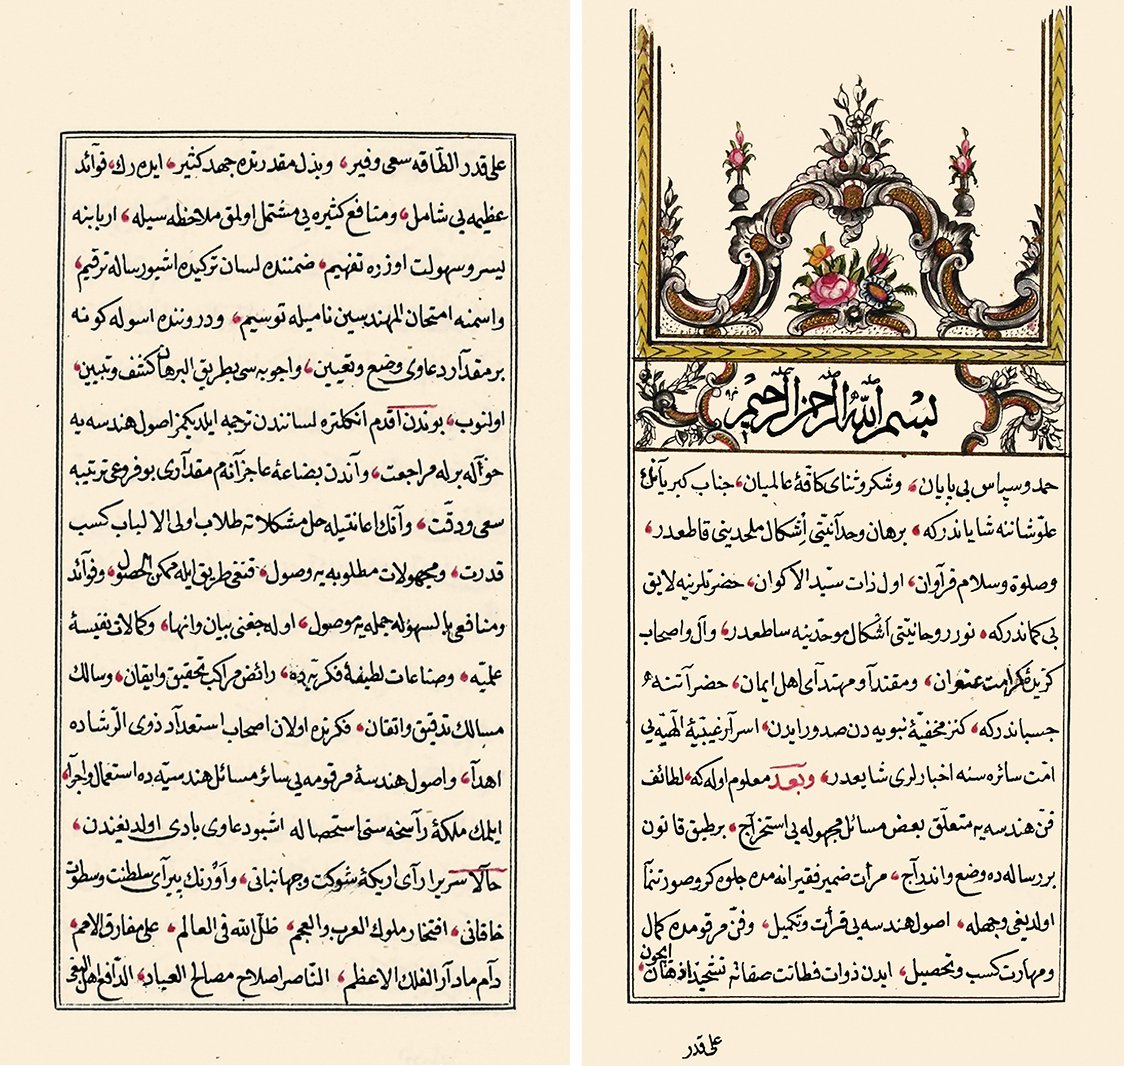 بسم الله الرحمن الرحيم
حمد و سپاس بی پایان، و شکر و ثنای کافّهٔ عالمیان، جناب کبریآنك
علّو شاننه شایاندرکه، برهان وحدآنیّتی اشکال ملحدینی قاطعدر،
و صلوة و سلام فرآوان، اول ذات سیّد الاکوان، حضرتلرینه لایق
بی کماندرکه، نور روحانیّتی اشکال موحدینه ساطعدر، و آل و اصحاب
کزیدهٔ کرامت عنوان، و مقتدآ و مهتدآی اهل ایمان، حضرآتنه
جسباندرکه، کنز مخفیّهٔ نبویه دن صدور ایدن، اسرآر غیبیّهٔ الٓهیّه یی
امّت سائره سنه اخبارلری شایعدر، و بعد معلوم اوله که، لطائف
فنّ هندسه یه متعلّق بعض مسائل مجهوله یی استخرآج، بر طبق قانون
بر رساله ده وضع و اندرآج، مرأت ضمیر فقیرانه مده جلوه کر و صورتنمآ
اولدیغی وجهله، اصول هندسه یی قرأت و تکمیل، و فنّ مرقومده کمال
و مهارت کسب و تحصیل، ایدن ذوات فطانت صفاته تشحیذ اذهان ایچون
علی قدر
علی قدر الطّاقه سعی وفیر، و بذل مقدرتده جهد کثیر، ایده رك، فوآئد
عظیمه یی شامل، و منافع کثیره یی مشتمل اولمق ملاحظه سیله، اربابنه
یسر و سهولت اوزره تفهیم، ضمننده لسان ترکیده اشبو رساله ترقیم،
و اسمنه امتحان المهندسین نامیله توسیم، و دروننده اسوله کونه
بر مقدآر دعاوی وضع و تعیین، و اجوبه سی بطریق البرهان کشف و تبیین،
اولنوب، بوندن اقدم انکلتره لسانندن ترجمه ایلدیکمز اصول هندسه یه
حوآله برله مراجعت، و آندن بضاعهٔ عاجزآنه م مقدآری بو فروعی ترتیبه
سعی و دقّت، و آنك اعانتیله حل مشکلاته طلاب اولی الالباب کسب
قدرت، و مجهولات مطلوبه یه وصول، قنغی طریق ایله ممکن الحصول، و فوآئد
و منافعی بالسهوله جمله یه موصول، اوله جغنی بیان و انها، و کمالات نفیسهٔ
علمیّه، و صناعات لطیفهٔ فکریّه ده، رائض مراکب تحقیق و ایقان، و سالك
مسالك تدقیق و اتقان، فکرتده اولان اصحاب استعدآد ذوی الرّشاده
اهدآ، و اصول هندسهٔ مرقومه یی سائر مسائل هندسیّه ده استعمال و اجرآ،
ایلمك ملکهٔ رآسخه سنی استحصاله اشبو دعاوی بادی اولدیغندن،
حالا سریر ارآی اریکهٔ شوکت و جهانبانی، و اورنك پیرآی سلطنت و سطوت
خاقانی، افتخار ملوك العرب و العجم، ظلّ الله فی العالم، علی مفارق الامم،
دآم مادآر الفلك الاعظم، النّاصر اصلاح مصالح العباد، الدّافع اهل البغی